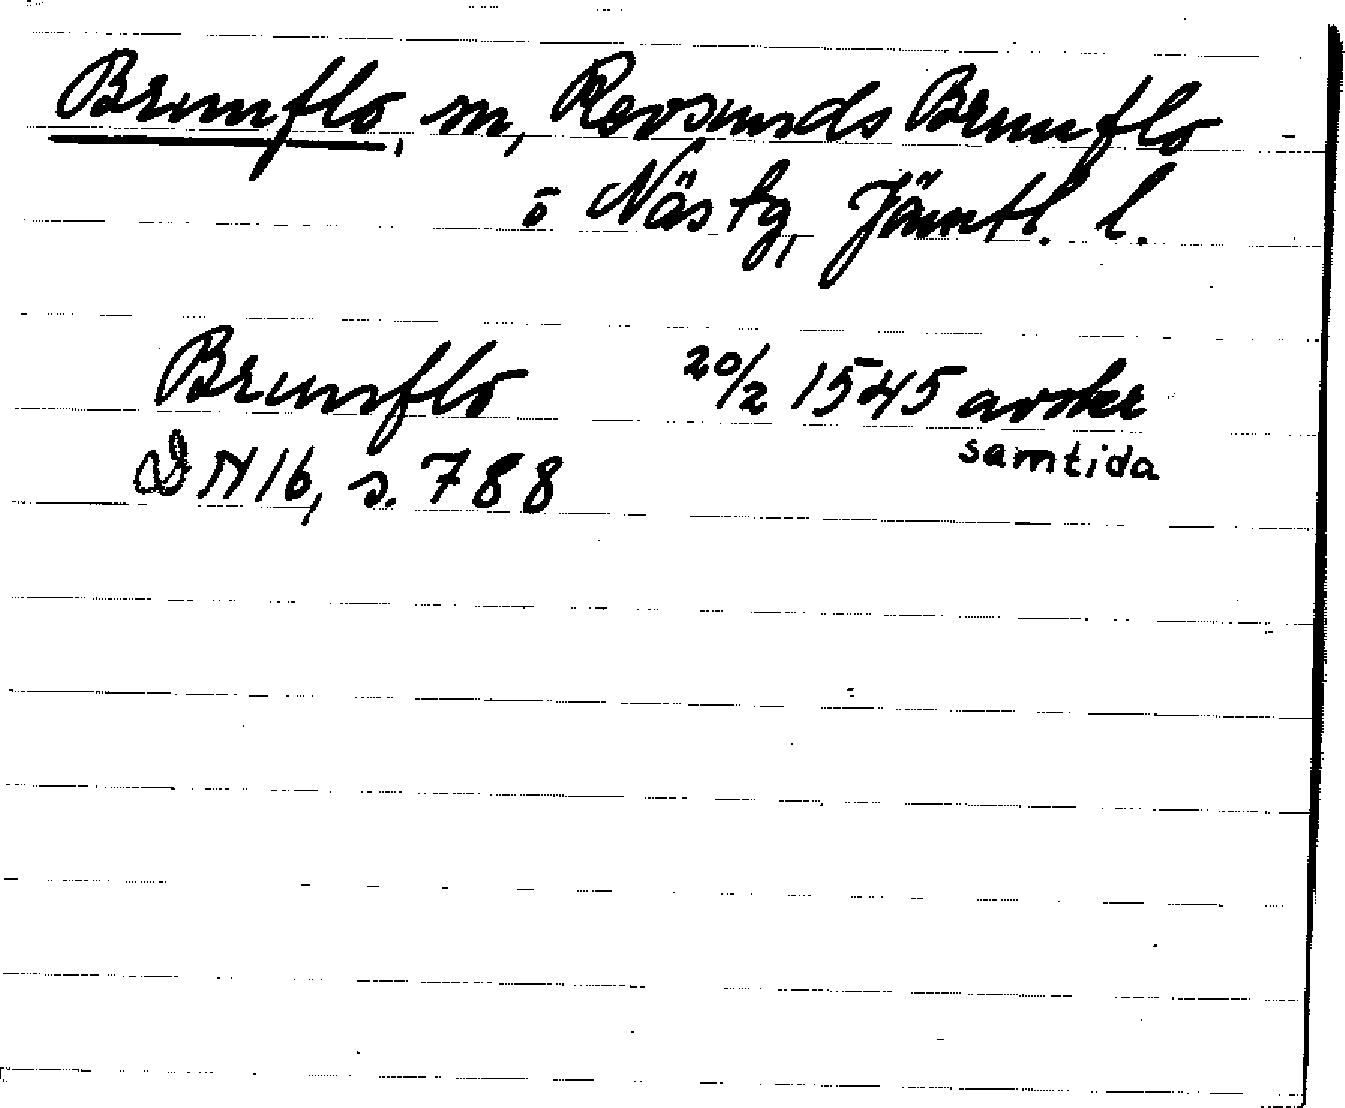 Brunflo, sn, Revsunds Brunflo
o Näs tg, Jämtl. l.
Brunflo 20/2 1545 avskr
samtida
DN 16, s. 788